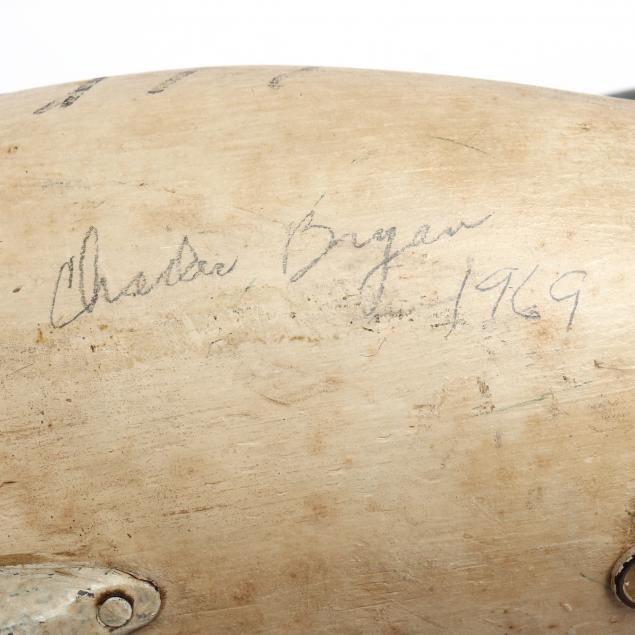 Charles Bryan
1969